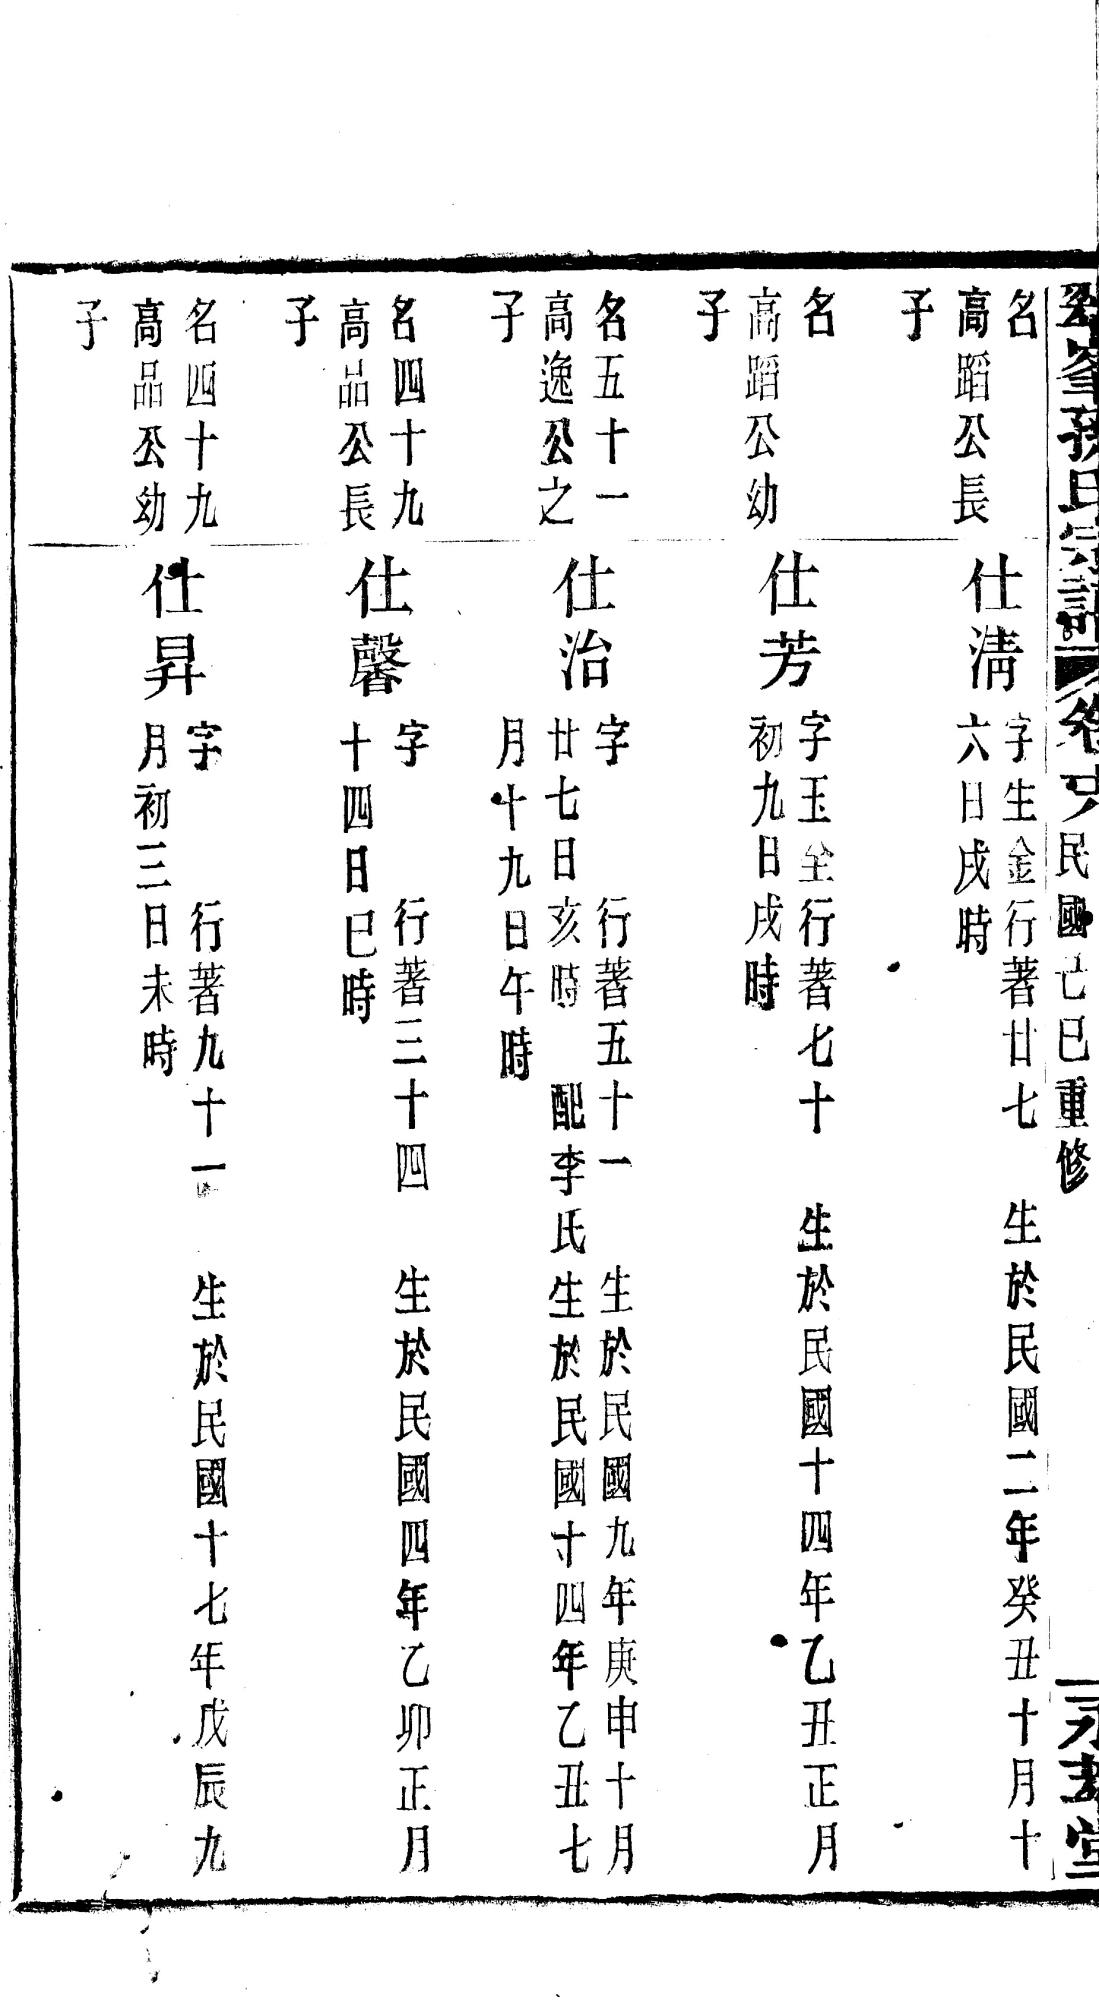 孫氏宗譜
民國己巳重修
堂
名
高蹈公長
子
仕淸
字生金行著廿七 生於民國二年癸丑十月十
六日戌時
名
高蹈公幼
子
仕芳
字玉全行著七十 生於民國十四年乙丑正月
初九日戌時
名五十一
高逸公之
子
仕治
字 行著五十一 生於民國九年庚申十月
廿七日亥時 配李氏生於民國十四年乙丑七
月十九日午時
名四十九
高品公長
子
仕馨
字 行著三十四 生於民國四年乙卯正月
十四日巳時
名四十九
高品公幼
子
仕昇
字 行著九十一 生於民國十七年戊辰九
月初三日未時